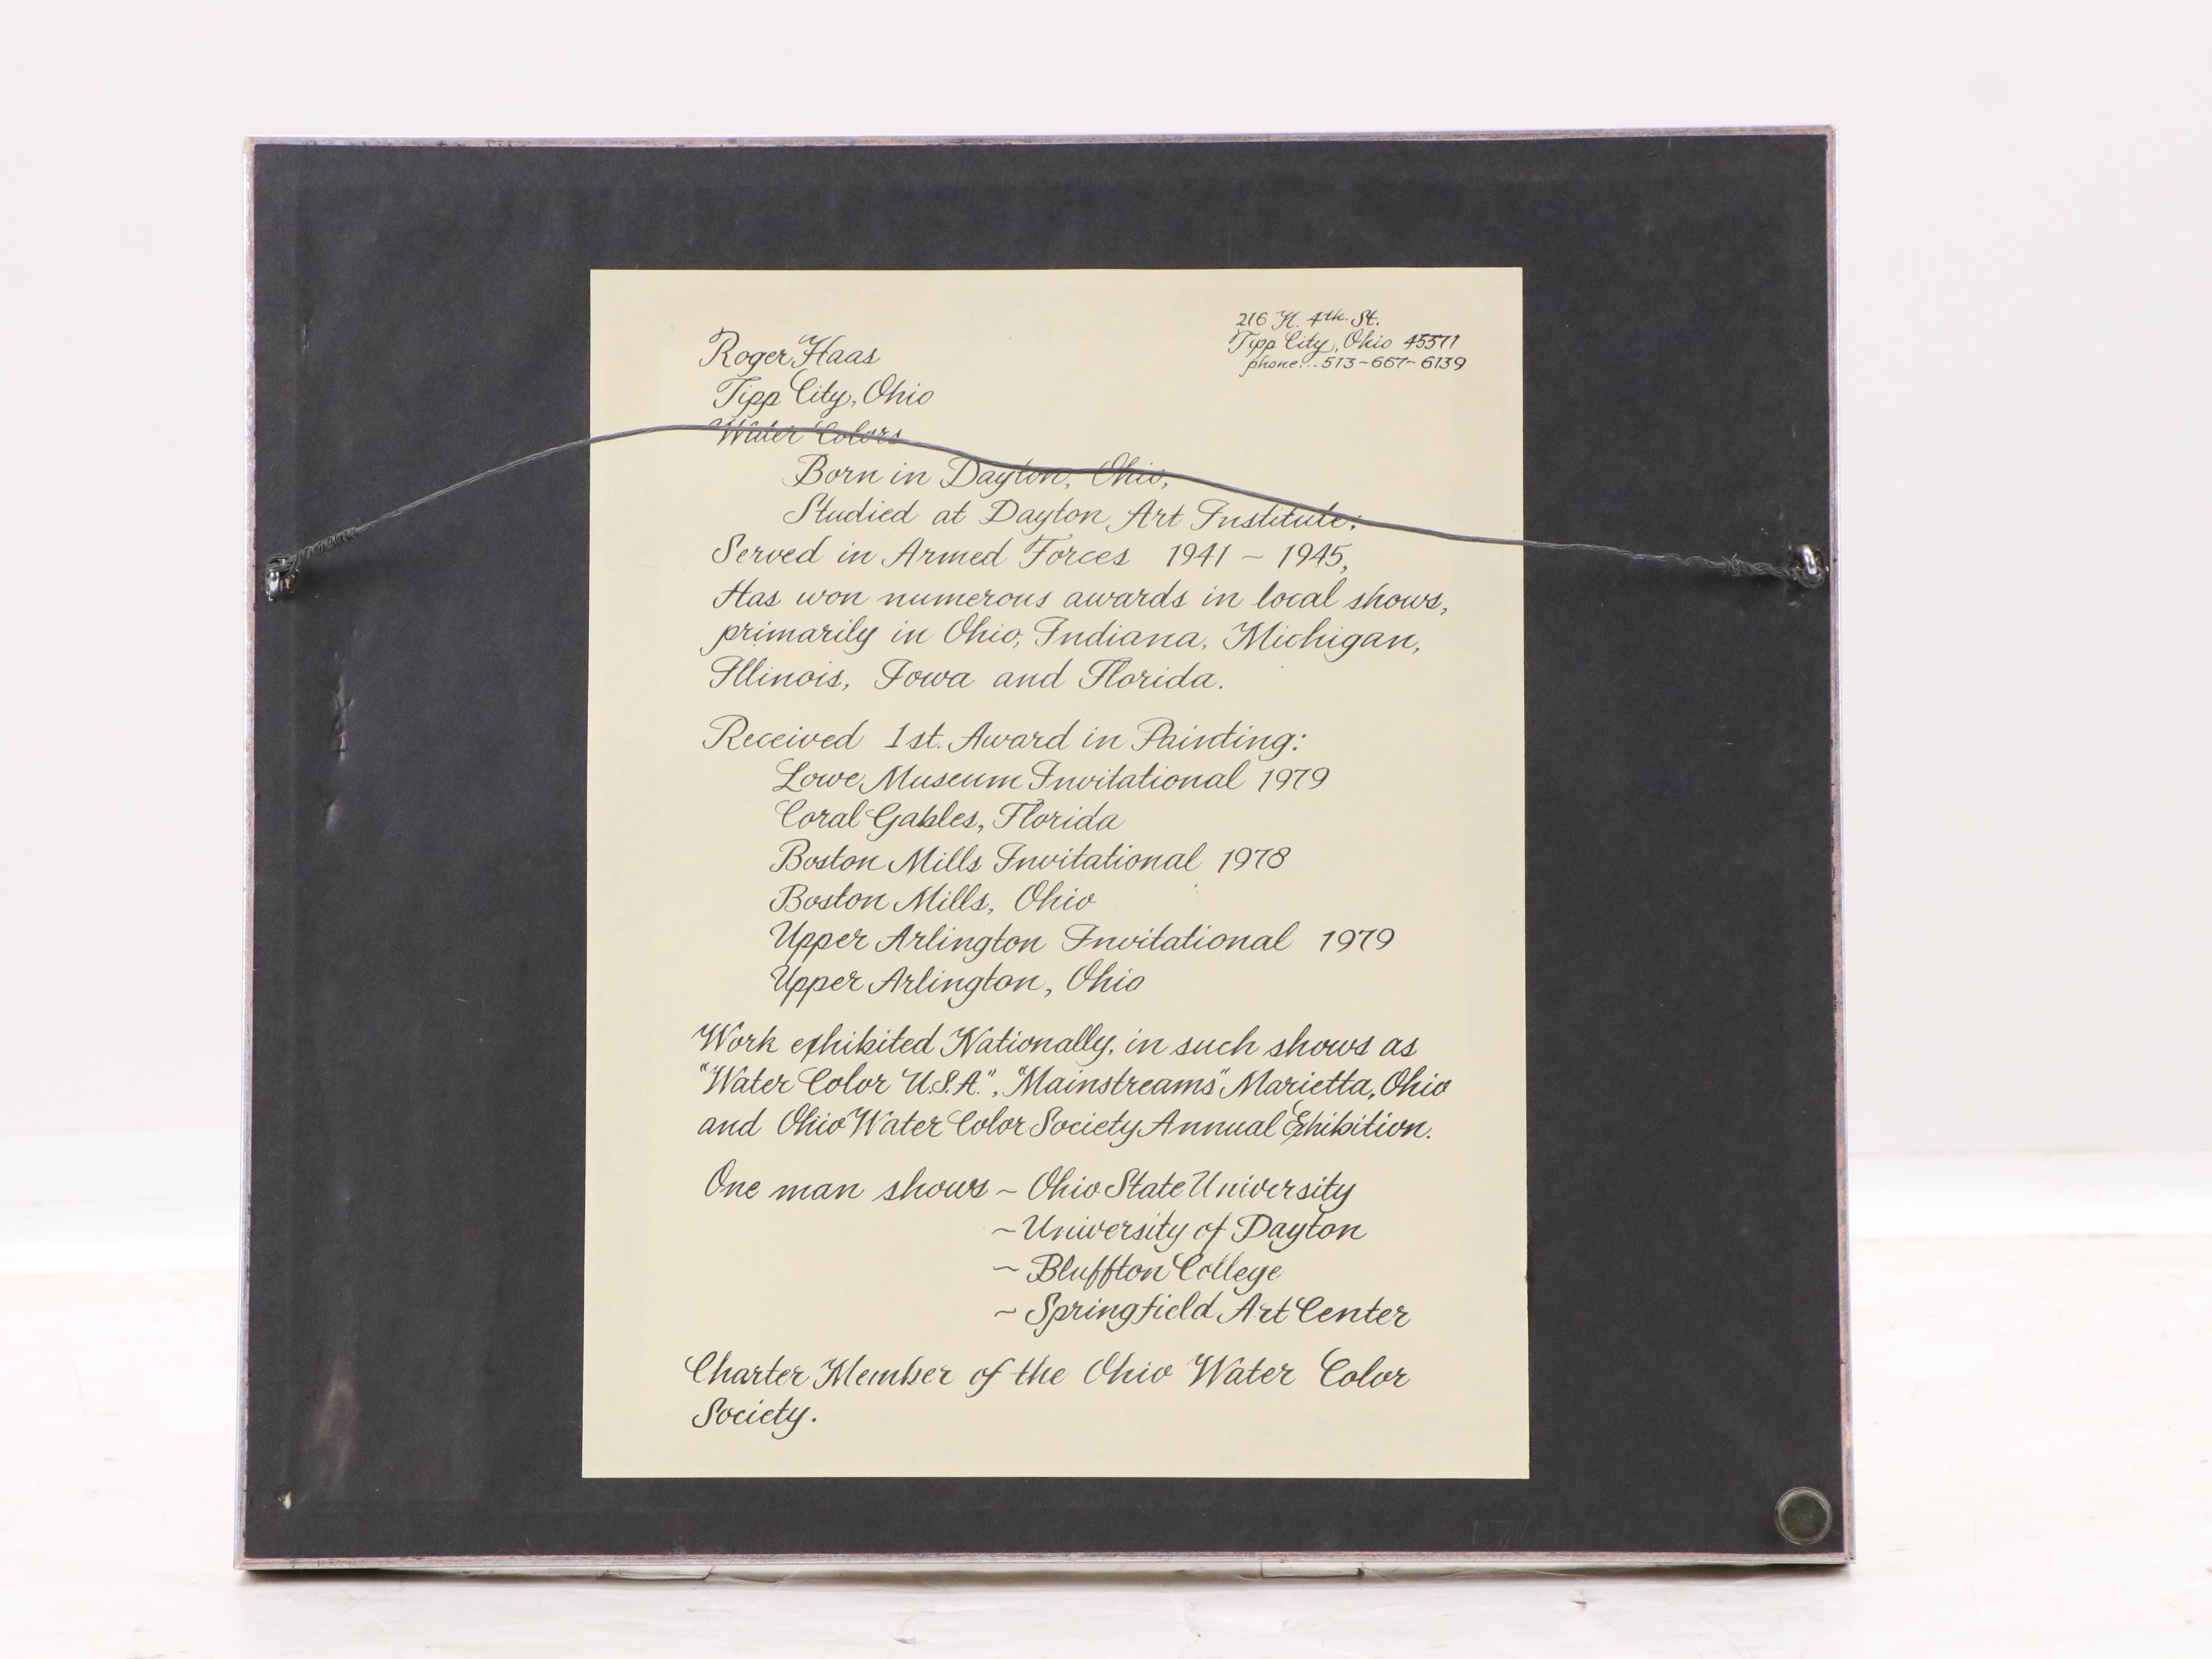 216 N. 4th. St.
Tipp City, Ohio 45371
phone...513-667-6139
Roger Haas
Tipp City, Ohio
Water Colors
Born in Dayton, Ohio,
Studied at Dayton Art Institute;
Served in Armed Forces 1941 ~ 1945,
Has won numerous awards in local shows,
primarily in Ohio, Indiana, Michigan,
Illinois, Iowa and Florida.
Received 1st. Award in Painting:
Lowe Museum Invitational 1979
Coral Gables, Florida
Boston Mills Invitational 1978
Boston Mills, Ohio
Upper Arlington Invitational 1979
Upper Arlington, Ohio
Work exhibited Nationally, in such shows as
"Water Color U.S.A.", "Mainstreams" Marietta, Ohio
and Ohio Water Color Society Annual Exhibition.
One man shows ~ Ohio State University
~ University of Dayton
~ Bluffton College
~ Springfield Art Center
Charter Member of the Ohio Water Color
Society.